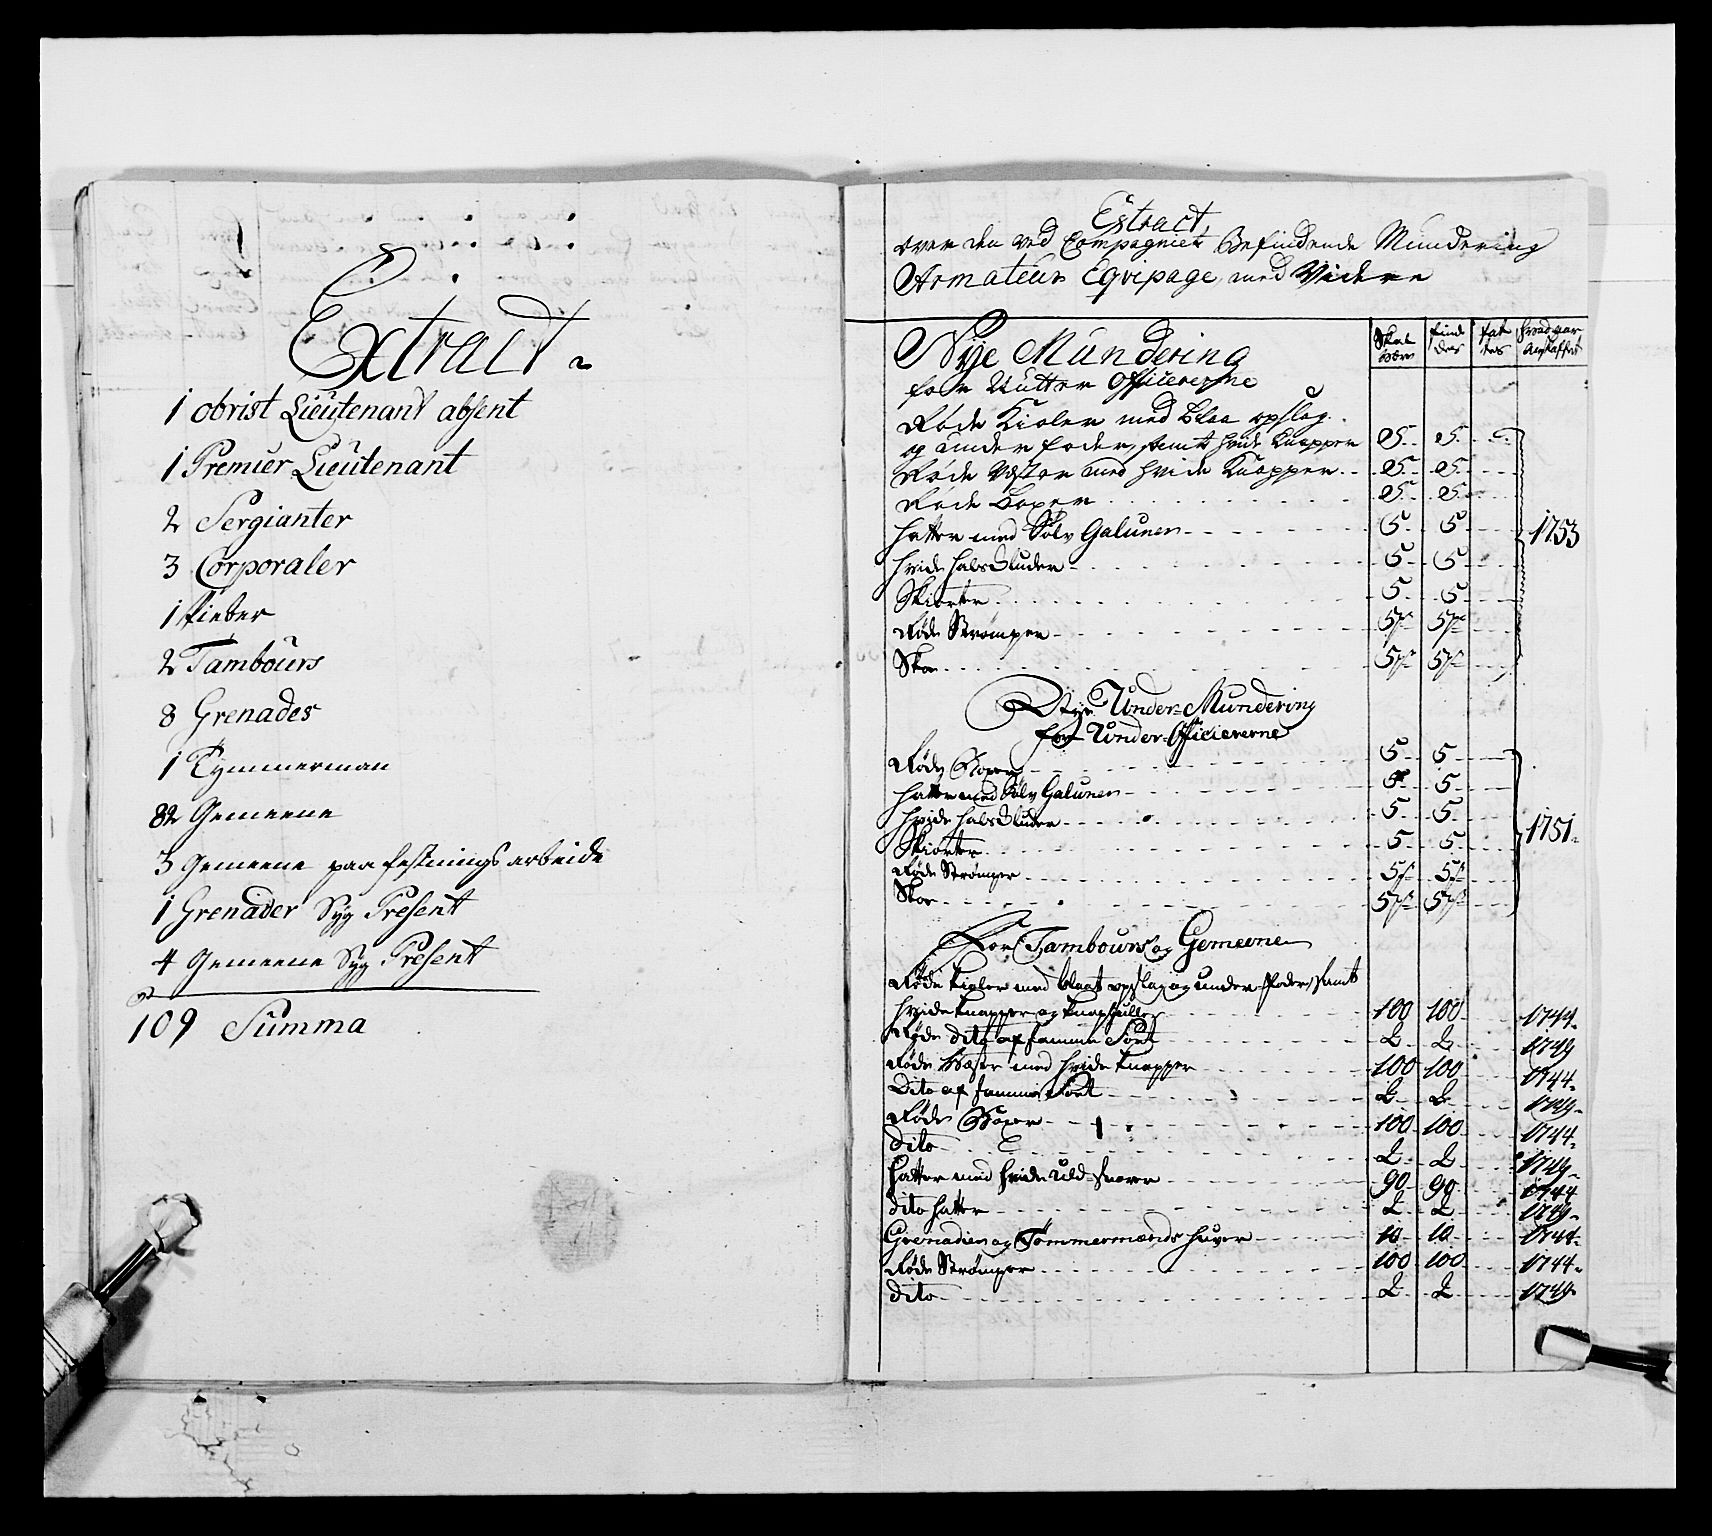 Extract
1 Obrist Lieutenant absent
1 Premier Lieutenant
2 Sergianter
3 Corporaler
1 Pieber
2 Tambours
8 Grenades
1 Tymmerman
82 Gemeene
3 Gemeene paa festnings arbeide
1 Grenader Syg Present
4 Gemeene Syg Present
109 Summa
Extract
over den ved Compagniet Befindende Mundering
Armateur Eqvipage med Videre
Nye Mundering
for Under Officererne
Skal være
findes
fattes
hvad aar Anskaffet
Røde Kioler med blaa opslag
og under foder, samt hvide Knapper 5 5
Røde Vester med hvide Knapper 5 5
Røde Boxer 5 5
Hatter med Sølv Galuner 5 5 1753
hvide halsKluder 5 5
Skiorter 5 5
Røde Strømper 5 5
Skoe 5 5
Nye Under-Mundering
for Under-Officiererne
Røde Boxer 5 5
Hatter med Sølv Galuner 5 5
hvide halsKluder 5 5 1751
Skiorter 5 5
Røde Strømper 5 5
Skoe 5 5
For Tambours og Gemeene
Røde Kioler med blaat opslag og under foder, samt
hvide knapper og knaphuller 100 100 1744
Røde dito af samme Sort 2 2 1749
Røde Vester med hvide knapper 100 100 1744
Dito af samme Sort 2 2 1749
Røde Boxer 100 100 1744
dito 2 2 1749
Hatter med hvide uld snorer 90 90 1744
dito hatter 2 2 1749
Grenadier og Tømmermænds huver 10 10 1744
Røde Strømper 100 100 1744
dito 2 2 1749